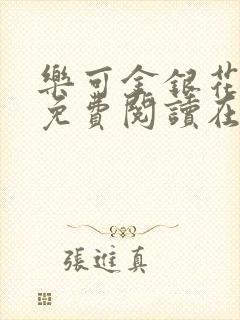 樂可金銀花
免費閱讀在
張進真